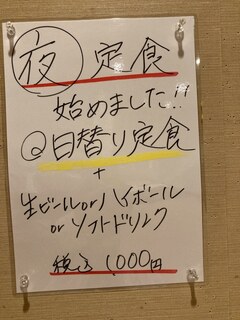 夜 定食
始めました!!
@日替り定食
+
生ビールorハイボール
orソフトドリンク
税込 1,000円